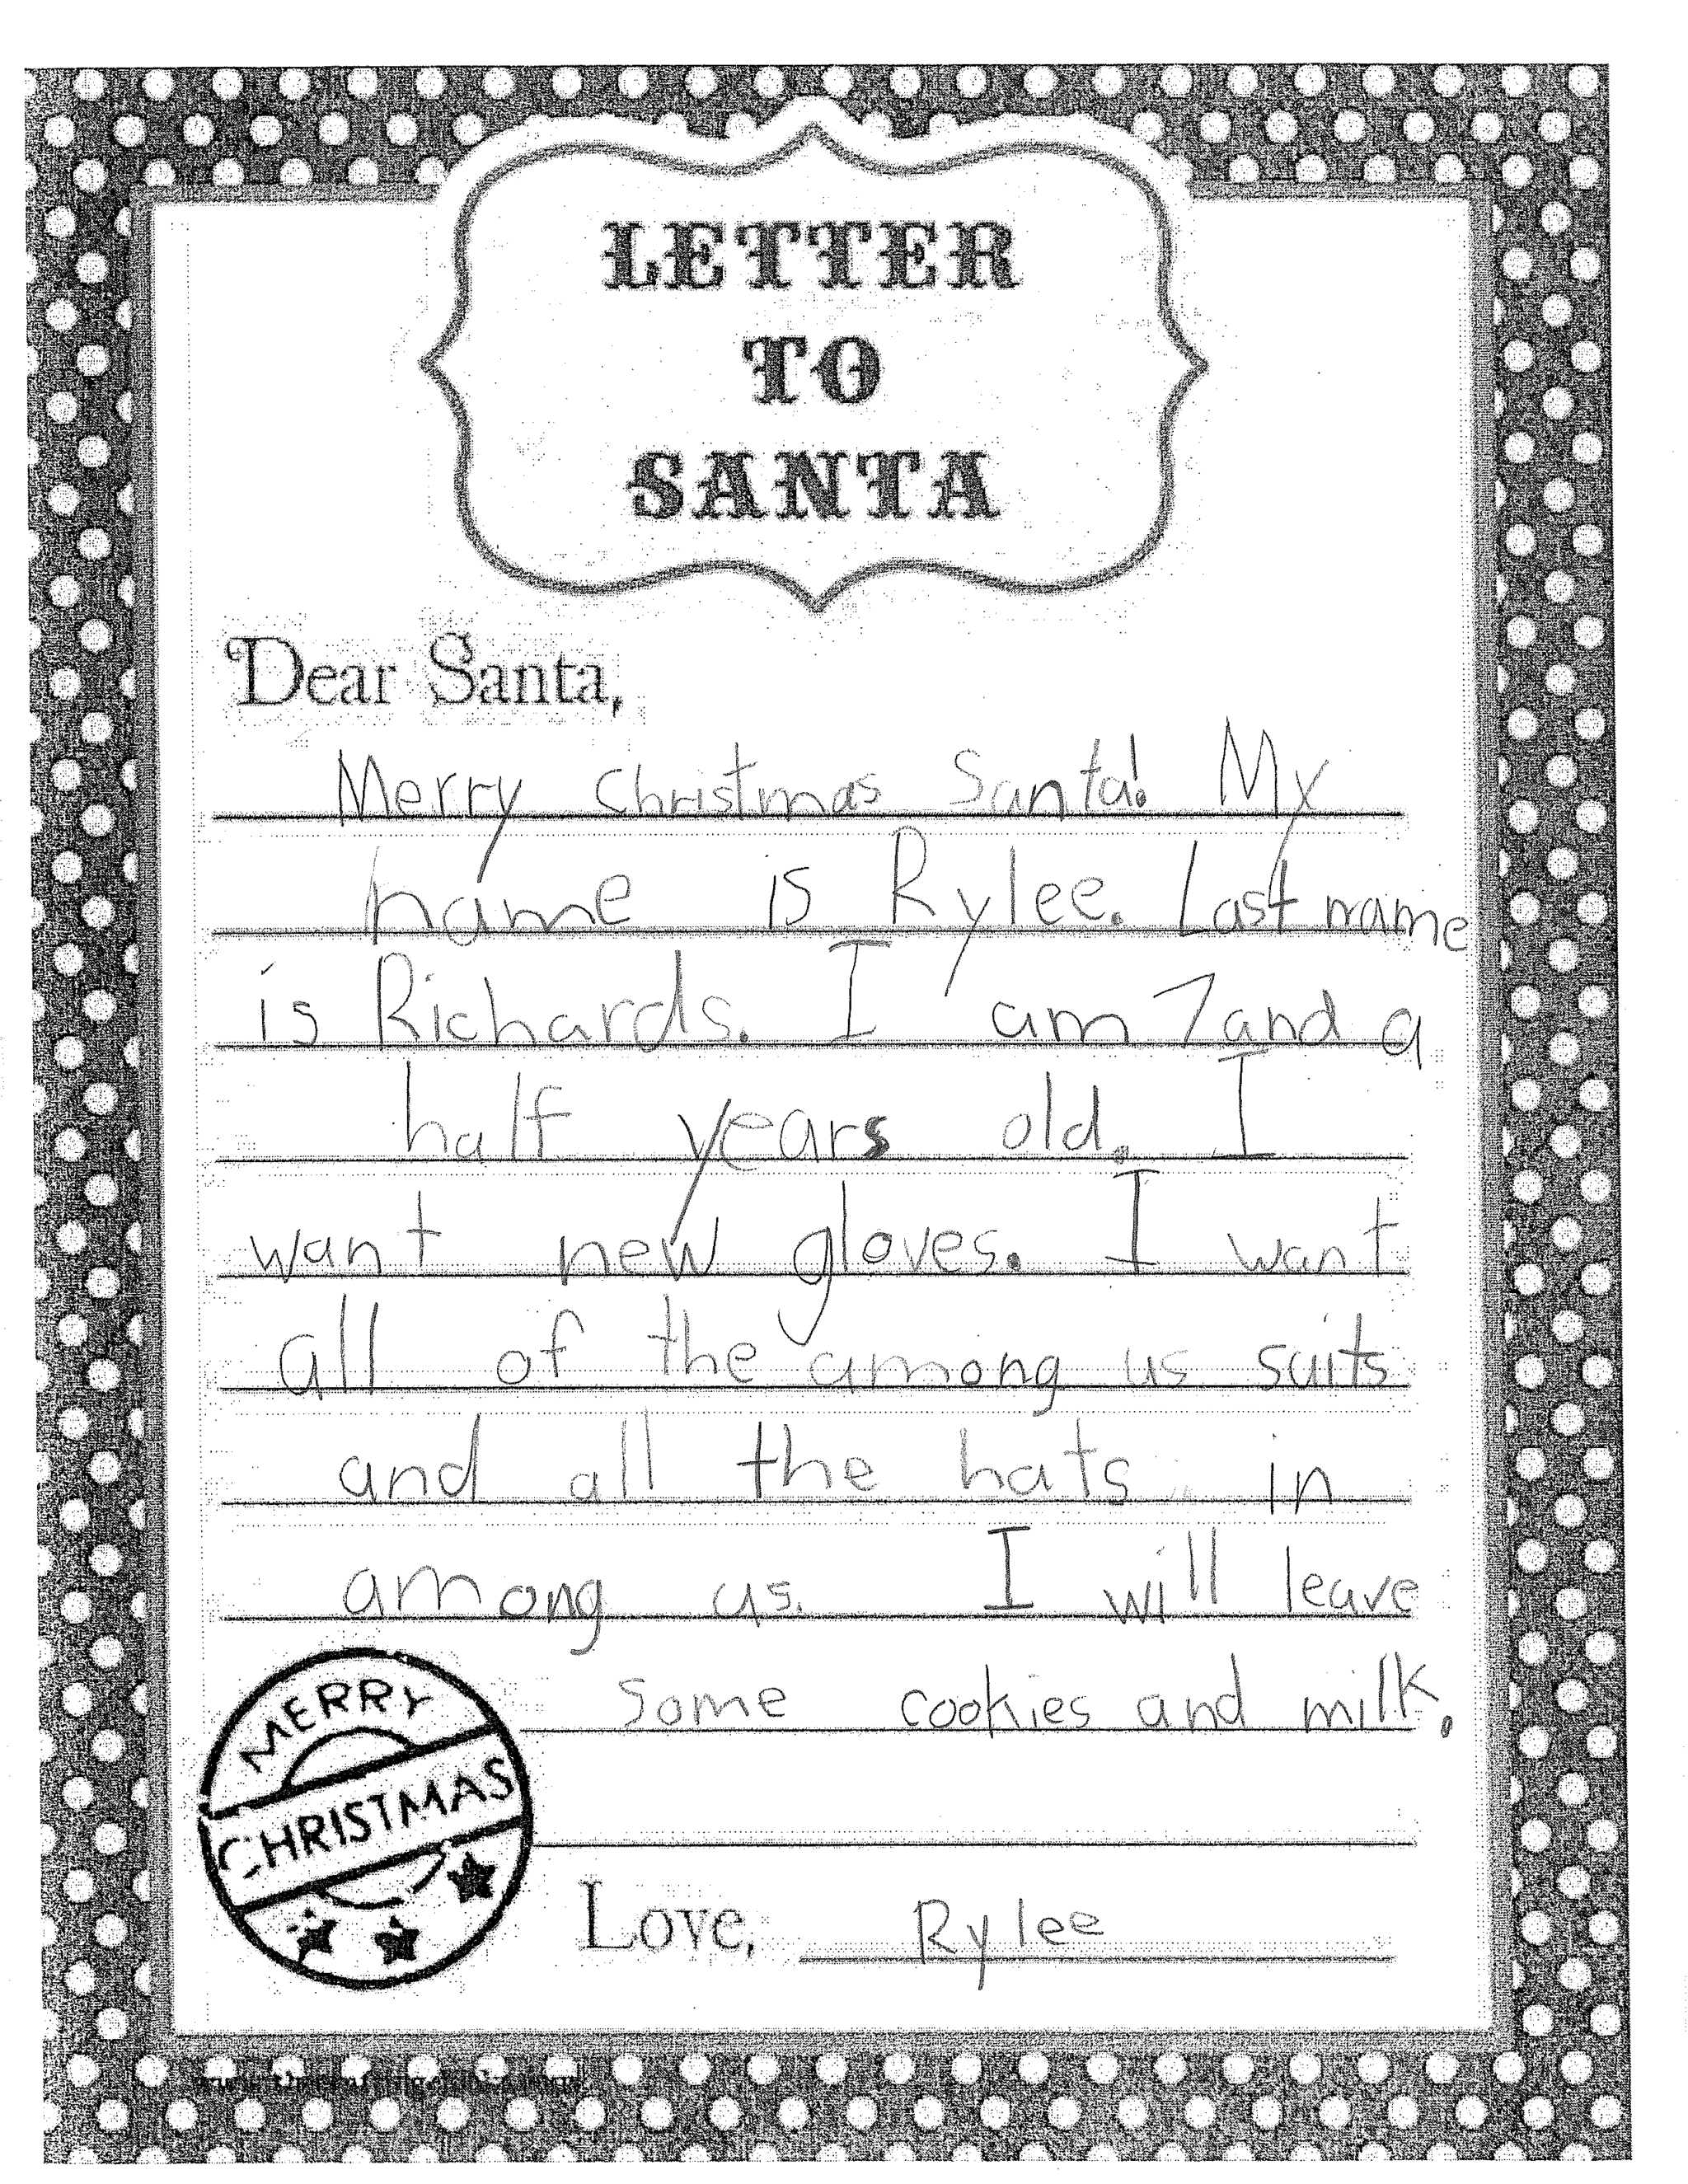 LETTER
TO
SANTA
Dear Santa,
Merry Christmas Santa! My
name is Rylee. Last name
is Richards. I am 7 and a
half years old. I
want new gloves. I want
all of the among us suits
and all the hats in
among us. I will leave
some cookies and milk.
MERRY
CHRISTMAS
Love, Rylee